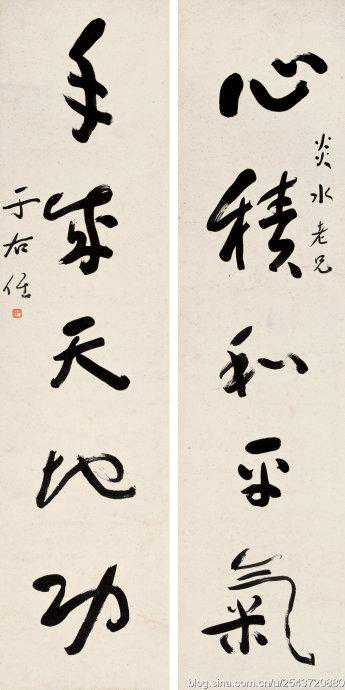 炎水老兄
心積和平氣
手成天地功
于右任
blog.sina.com.cn/u/2543720880